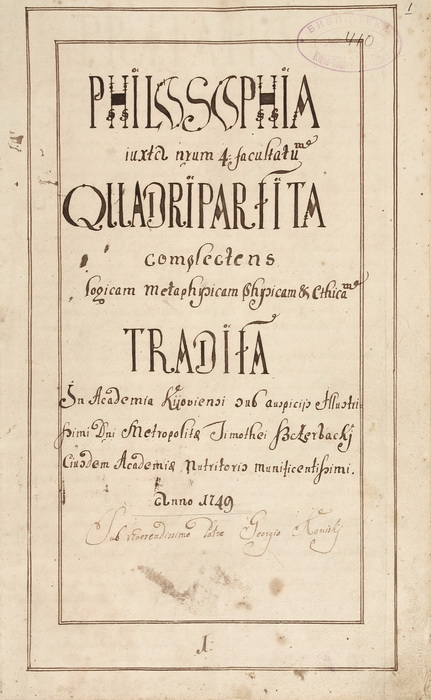 1
БИБЛИОТЕКА
410
PHILOSOPHIA
iuxta nrum 4. facultatū
QUADRIPARTITA
complectens
logicam metaphysicam Physicam & Ethicam
TRADITA
In Academia Kijoviensi sub auspicijs Illustri-
ssimi Dni Metropolitæ Timothei Szczerbackj
Eiusdem Academiæ Nutritoris munificentissimi.
Anno 1749
Sub reverendissimo Patre Georgio Konisky
1